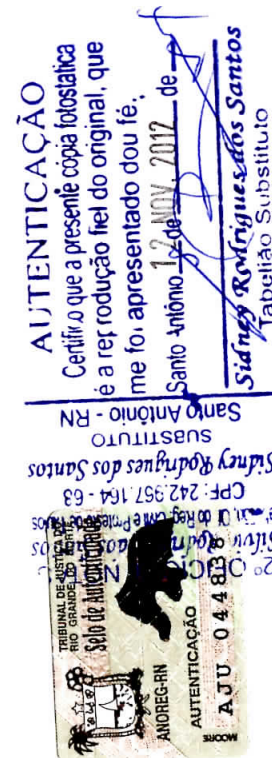 AUTENTICAÇÃO
Certifico que a presente cópia fotostática
é a reprodução fiel do original, que
me foi apresentado dou fé.
Santo Antônio 12 de NOV. 2012 de
Sidney Rodrigues dos Santos
Tabelião Substituto
2º OFÍCIO
CPF: 242.957.164 - 68
Sidney Rodrigues dos Santos
SUBSTITUTO
Santo Antônio - RN
TRIBUNAL DE JUSTIÇA DO
RIO GRANDE DO NORTE
Selo de Autenticidade
ANOREG-RN
AUTENTICAÇÃO
AJU 044838
MOORE